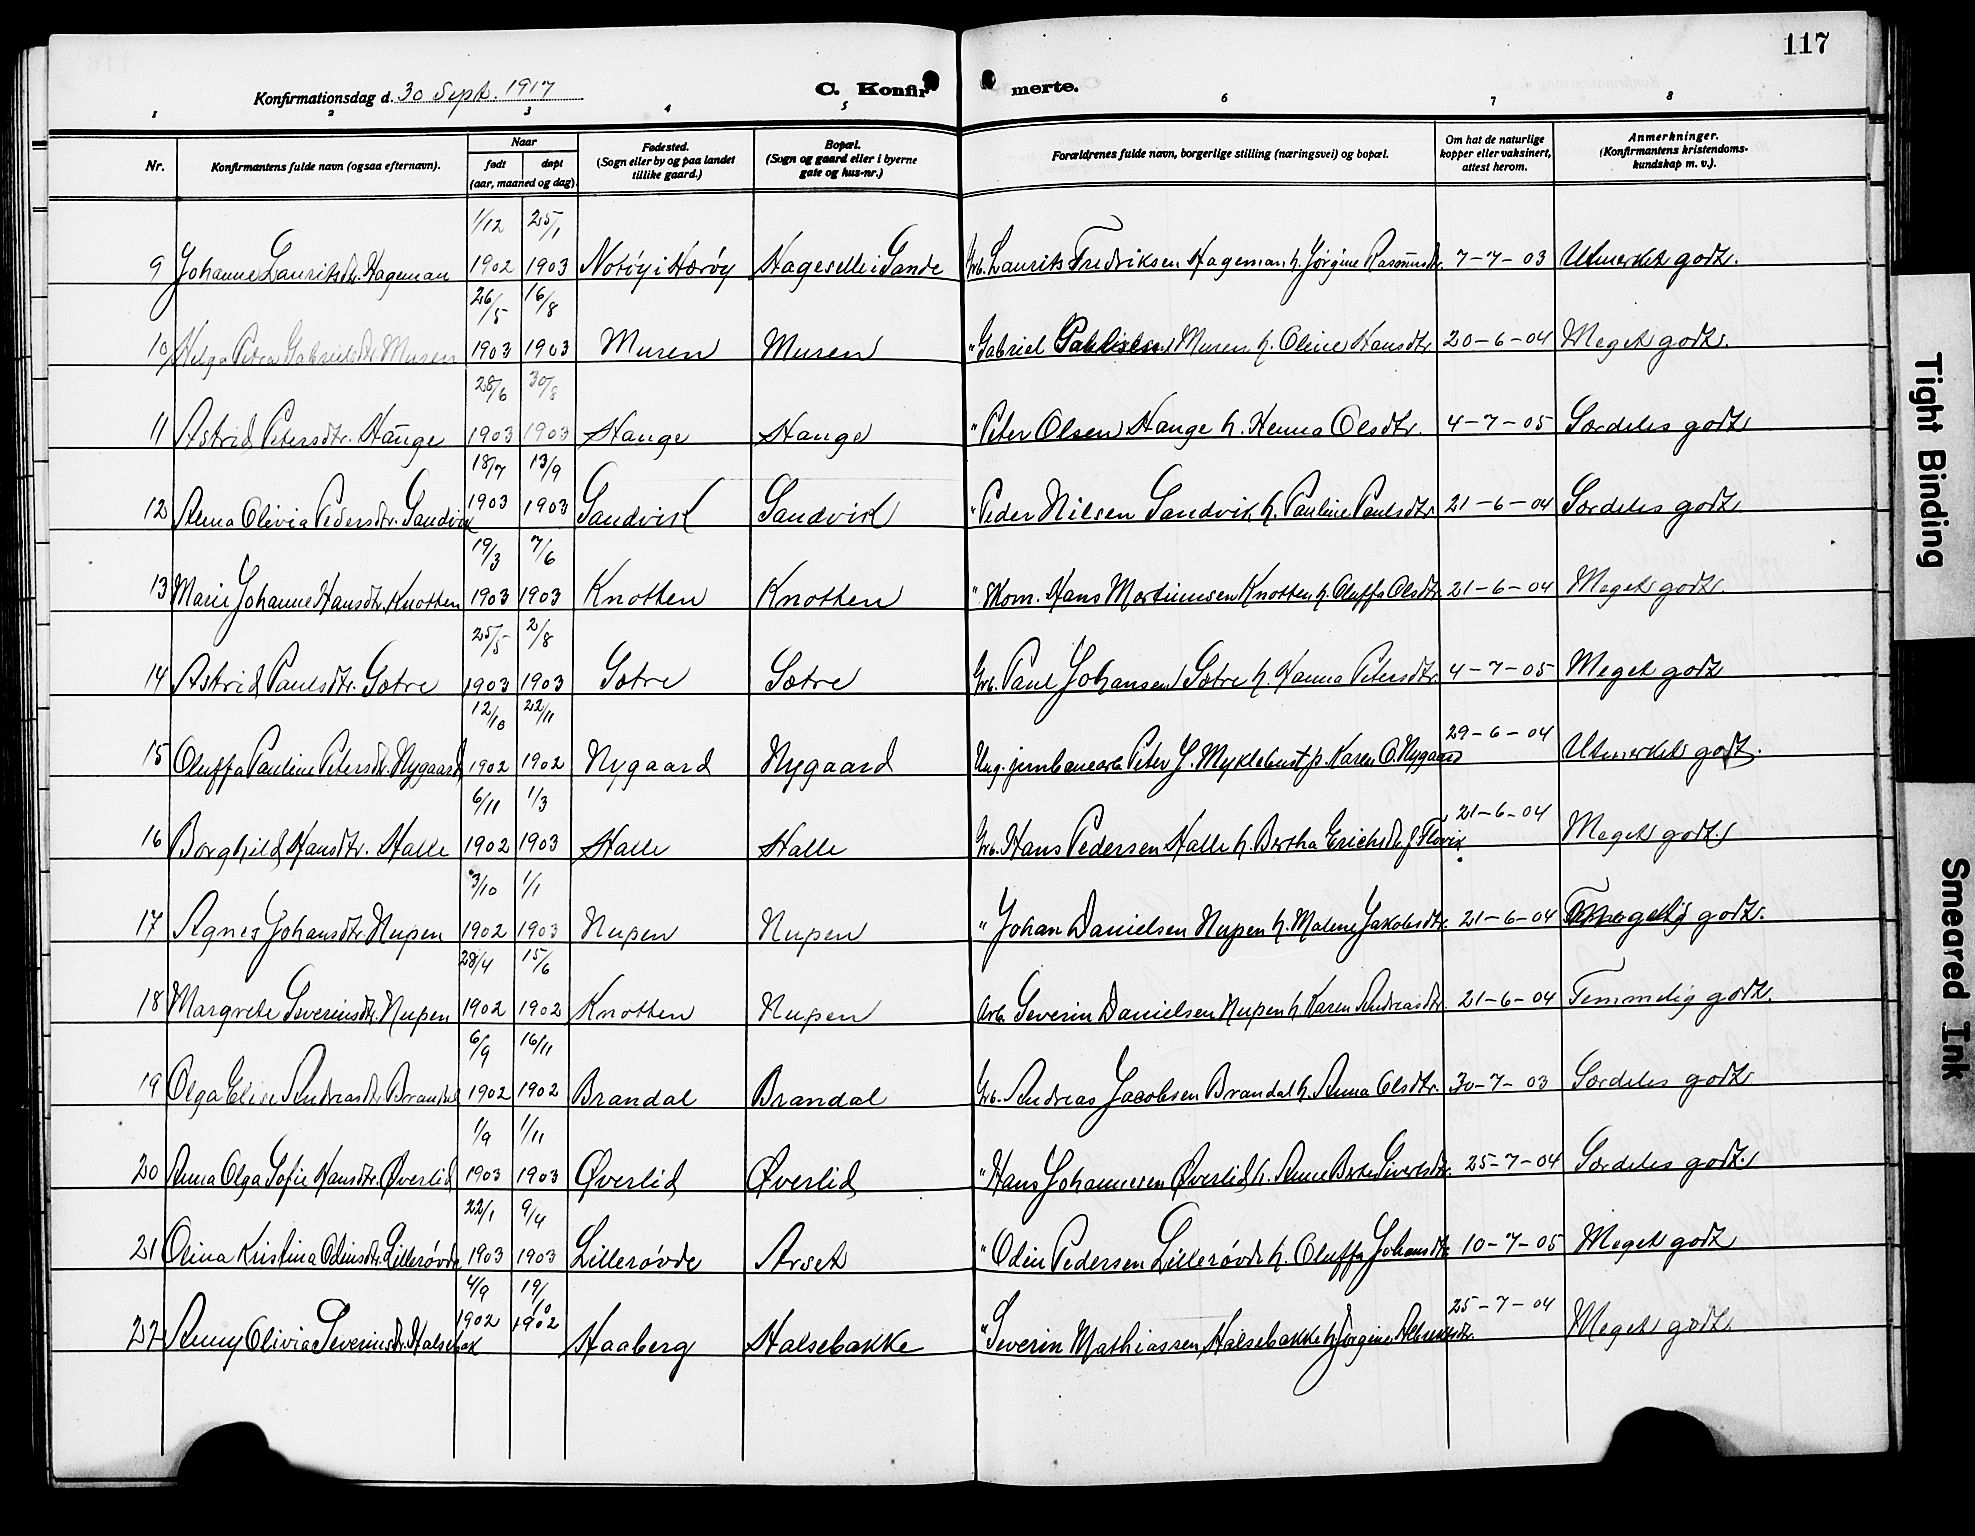 117
Konfirmationsdag d. 30 Sept. 1917
C. Konfir merte.
1 2 3 4 5 6 7 8
Nr.
Konfirmantens fulde navn (ogsaa efternavn).
Naar
født døpt
(aar, maaned og dag)
Fødested.
(Sogn eller by og paa landet
tillike gaard.)
Bopæl.
(Sogn og gaard eller i byerne
gate og hus-nr.)
Forældrenes fulde navn, borgerlige stilling (næringsvei) og bopæl.
Om hat de naturlige
kopper eller vaksinert,
attest herom.
Anmerkninger.
(Konfirmantens kristendoms-
kundskap m. v.).
1/12 25/1
9 Johanne Lauritsdtr. Hageman 1902 1903 Notøy i Herøy Hageselle i Sande Grb. Laurits Fredriksen Hageman h. Jørgine Rasmusdtr. 7-7-03 Utmerket godt.
26/5 16/8
10 Helga Petra Gabrielsdtr. Muren 1903 1903 Muren Muren " Gabriel Muren h. Oline Hansdtr. 20-6-04 Meget godt.
28/6 30/8
11 Astrid Petersdtr. Hauge 1903 1903 Hauge Hauge " Peter Olsen Hauge h. Henna Olsdtr. 4-7-05 Særdeles godt
18/7 13/9
12 Anna Olivia Pedersdtr. Sandvik 1903 1903 Sandvik Sandvik " Peder Nilsen Sandvik h. Pauline Paulsdtr. 21-6-04 Særdeles godt
19/3 7/6
13 Marie Johanne Hansdtr. Knotten 1903 1903 Knotten Knotten " Skom. Hans Martinusen Knotten h. Oluffa Olsdtr. 21-6-04 Meget godt.
25/5 2/8
14 Astrid Paulsdtr. Sætre 1903 1903 Sætre Sætre Grb. Paul Johansen Sætre h. Hanna Petersdtr. 4-7-05 Meget godt
12/10 22/11
15 Oluffa Pauline Petersdtr. Nygaard 1902 1902 Nygaard Nygaard Ung. jernbanearb. Peter J. Myklebust, p. Karen O. Nygaard 29-6-04 Utmerket godt.
6/11 1/3
16 Borghild Hansdtr. Halle 1902 1903 Halle Halle Grb. Hans Pedersen Halle h. Bertha Erichsdtr. f. Flovik 21-6-04 Meget godt.
3/10 1/1
17 Agnes Johansdtr. Nupen 1902 1903 Nupen Nupen " Johan Danielsen Nupen h. Malene Jakobsdtr. 21-6-04 godt.
28/4 15/6
18 Margrete Severinsdtr. Nupen 1902 1902 Knotten Nupen Arb. Severin Danielsen Nupen h. Karen Andreasdtr. 21-6-04 Temmelig godt.
6/9 16/11
19 Olga Elise Andreasdtr. Brandal 1902 1902 Brandal Brandal Grb. Andreas Jacobsen Brandal h. Anna Olsdtr. 30-7-03 Særdeles godt
1/9 1/11
20 Anna Olga Sofie Hansdtr. Øverlid 1903 1903 Øverlid Øverlid " Hans Johannesen Øverlid h. Anne Berte Sivertsdtr. 25-7-04 Særdeles godt.
22/1 9/4
21 Olina Kristina Odinsdtr. Lillerøvde 1903 1903 Lillerøvde Arset " Odin Pedersen Lillerøvde h. Oluffa Johansdtr. 10-7-05 Meget godt
4/9 19/10
22 Anny Olivia Severinsdtr. Halsebak 1902 1902 Haaberg Halsebakke " Severin Mathiassen Halsebakke h. Jørgine Albertsdtr. 25-7-04 Meget godt
Tight Binding
Smeared Ink